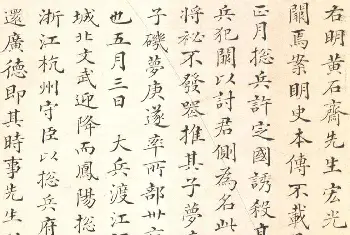 右明黄石齋先生宏光
闕焉案明史本傳不載
正月総兵許定國誘殺
兵犯闕以討君側為名此
將祕不發喪推其子夢
子磯夢庚遂率所部卅
也五月三日 大兵渡江
城北文武迎降而鳳陽総
浙江杭州守臣以総兵府
還廣德即其時事先生